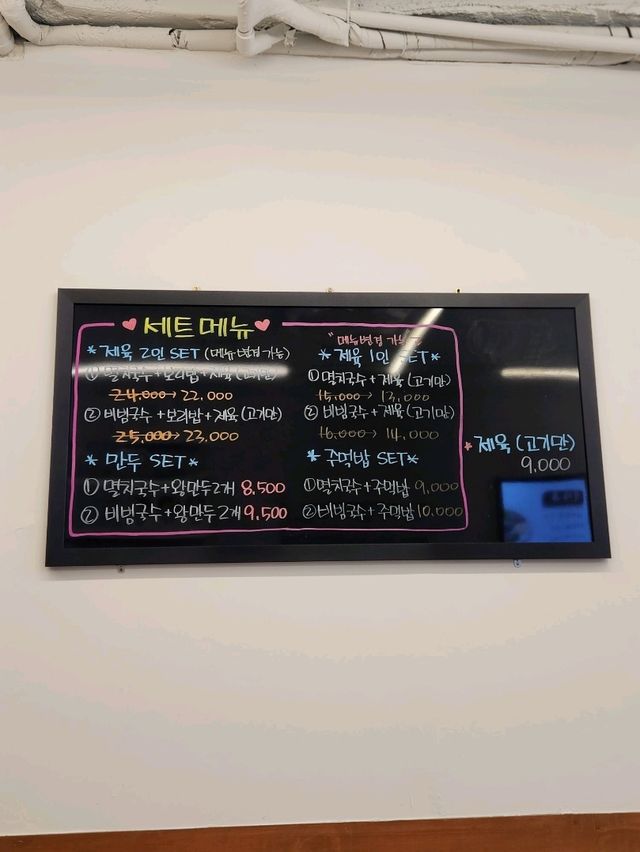 ♥ 세트메뉴 ♥
* 제육 2인 SET (메뉴변경 가능)
① 멸치국수 + 보리밥 + 제육 (고기만)
24,000 → 22,000
② 비빔국수 + 보리밥 + 제육 (고기만)
25,000 → 23,000
* 만두 SET *
① 멸치국수 + 왕만두 2개 8,500
② 비빔국수 + 왕만두 2개 9,500
"메뉴변경 가능"
* 제육 1인 SET *
① 멸치국수 + 제육 (고기만)
15,000 → 13,000
② 비빔국수 + 제육 (고기만)
16,000 → 14,000
* 주먹밥 SET *
① 멸치국수 + 주먹밥 9,000
② 비빔국수 + 주먹밥 10,000
* 제육 (고기만)
9,000